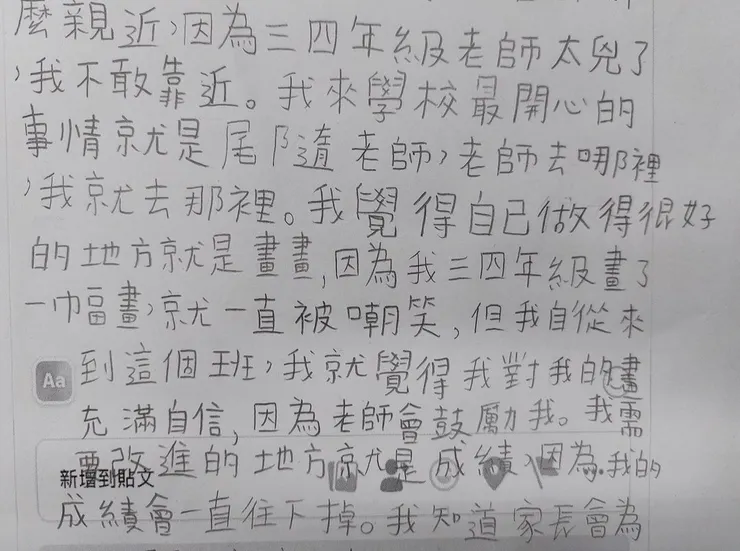 麼親近，因為三四年級老師太兇了
，我不敢靠近。我來學校最開心的
事情就是尾隨老師，老師去哪裡
，我就去那裡。我覺得自己做得很好
的地方就是畫畫，因為我三四年級畫了
一幅畫，就一直被嘲笑，但我自從來
Aa
到這個班，我就覺得我對我的畫
充滿自信，因為老師會鼓勵我。我需
要改進的地方就是成績，因為我的
新增到貼文
成績會一直往下掉。我知道家長會為